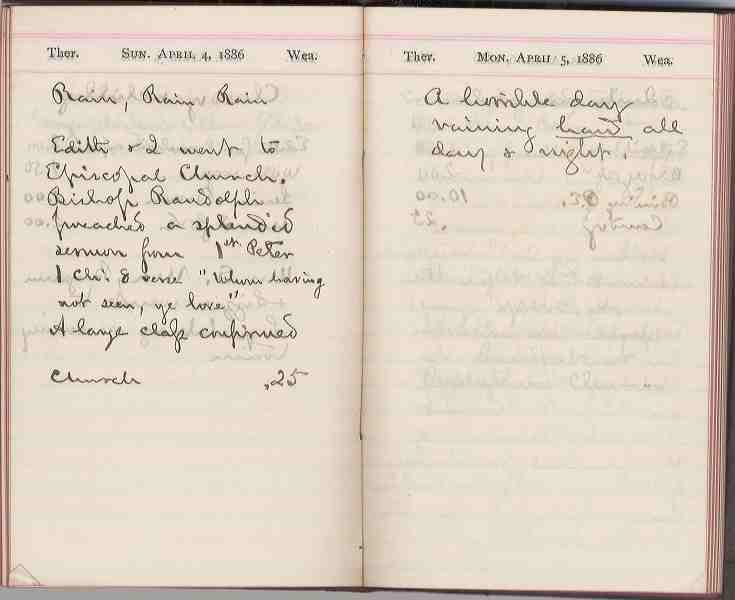 Ther. SUN. APRIL 4, 1886 Wea.
Rain, Rain Rain
Edith & I went to
Episcopal Church.
Bishop Randolph
preached a splendid
sermon from 1st Peter
1 Ch: 8 verse "Whom having
not seen, ye love"
A large class confirmed
Church .25
Ther. MON. APRIL 5, 1886 Wea.
A horrible day
raining hard all
day & night.
10.00
.25